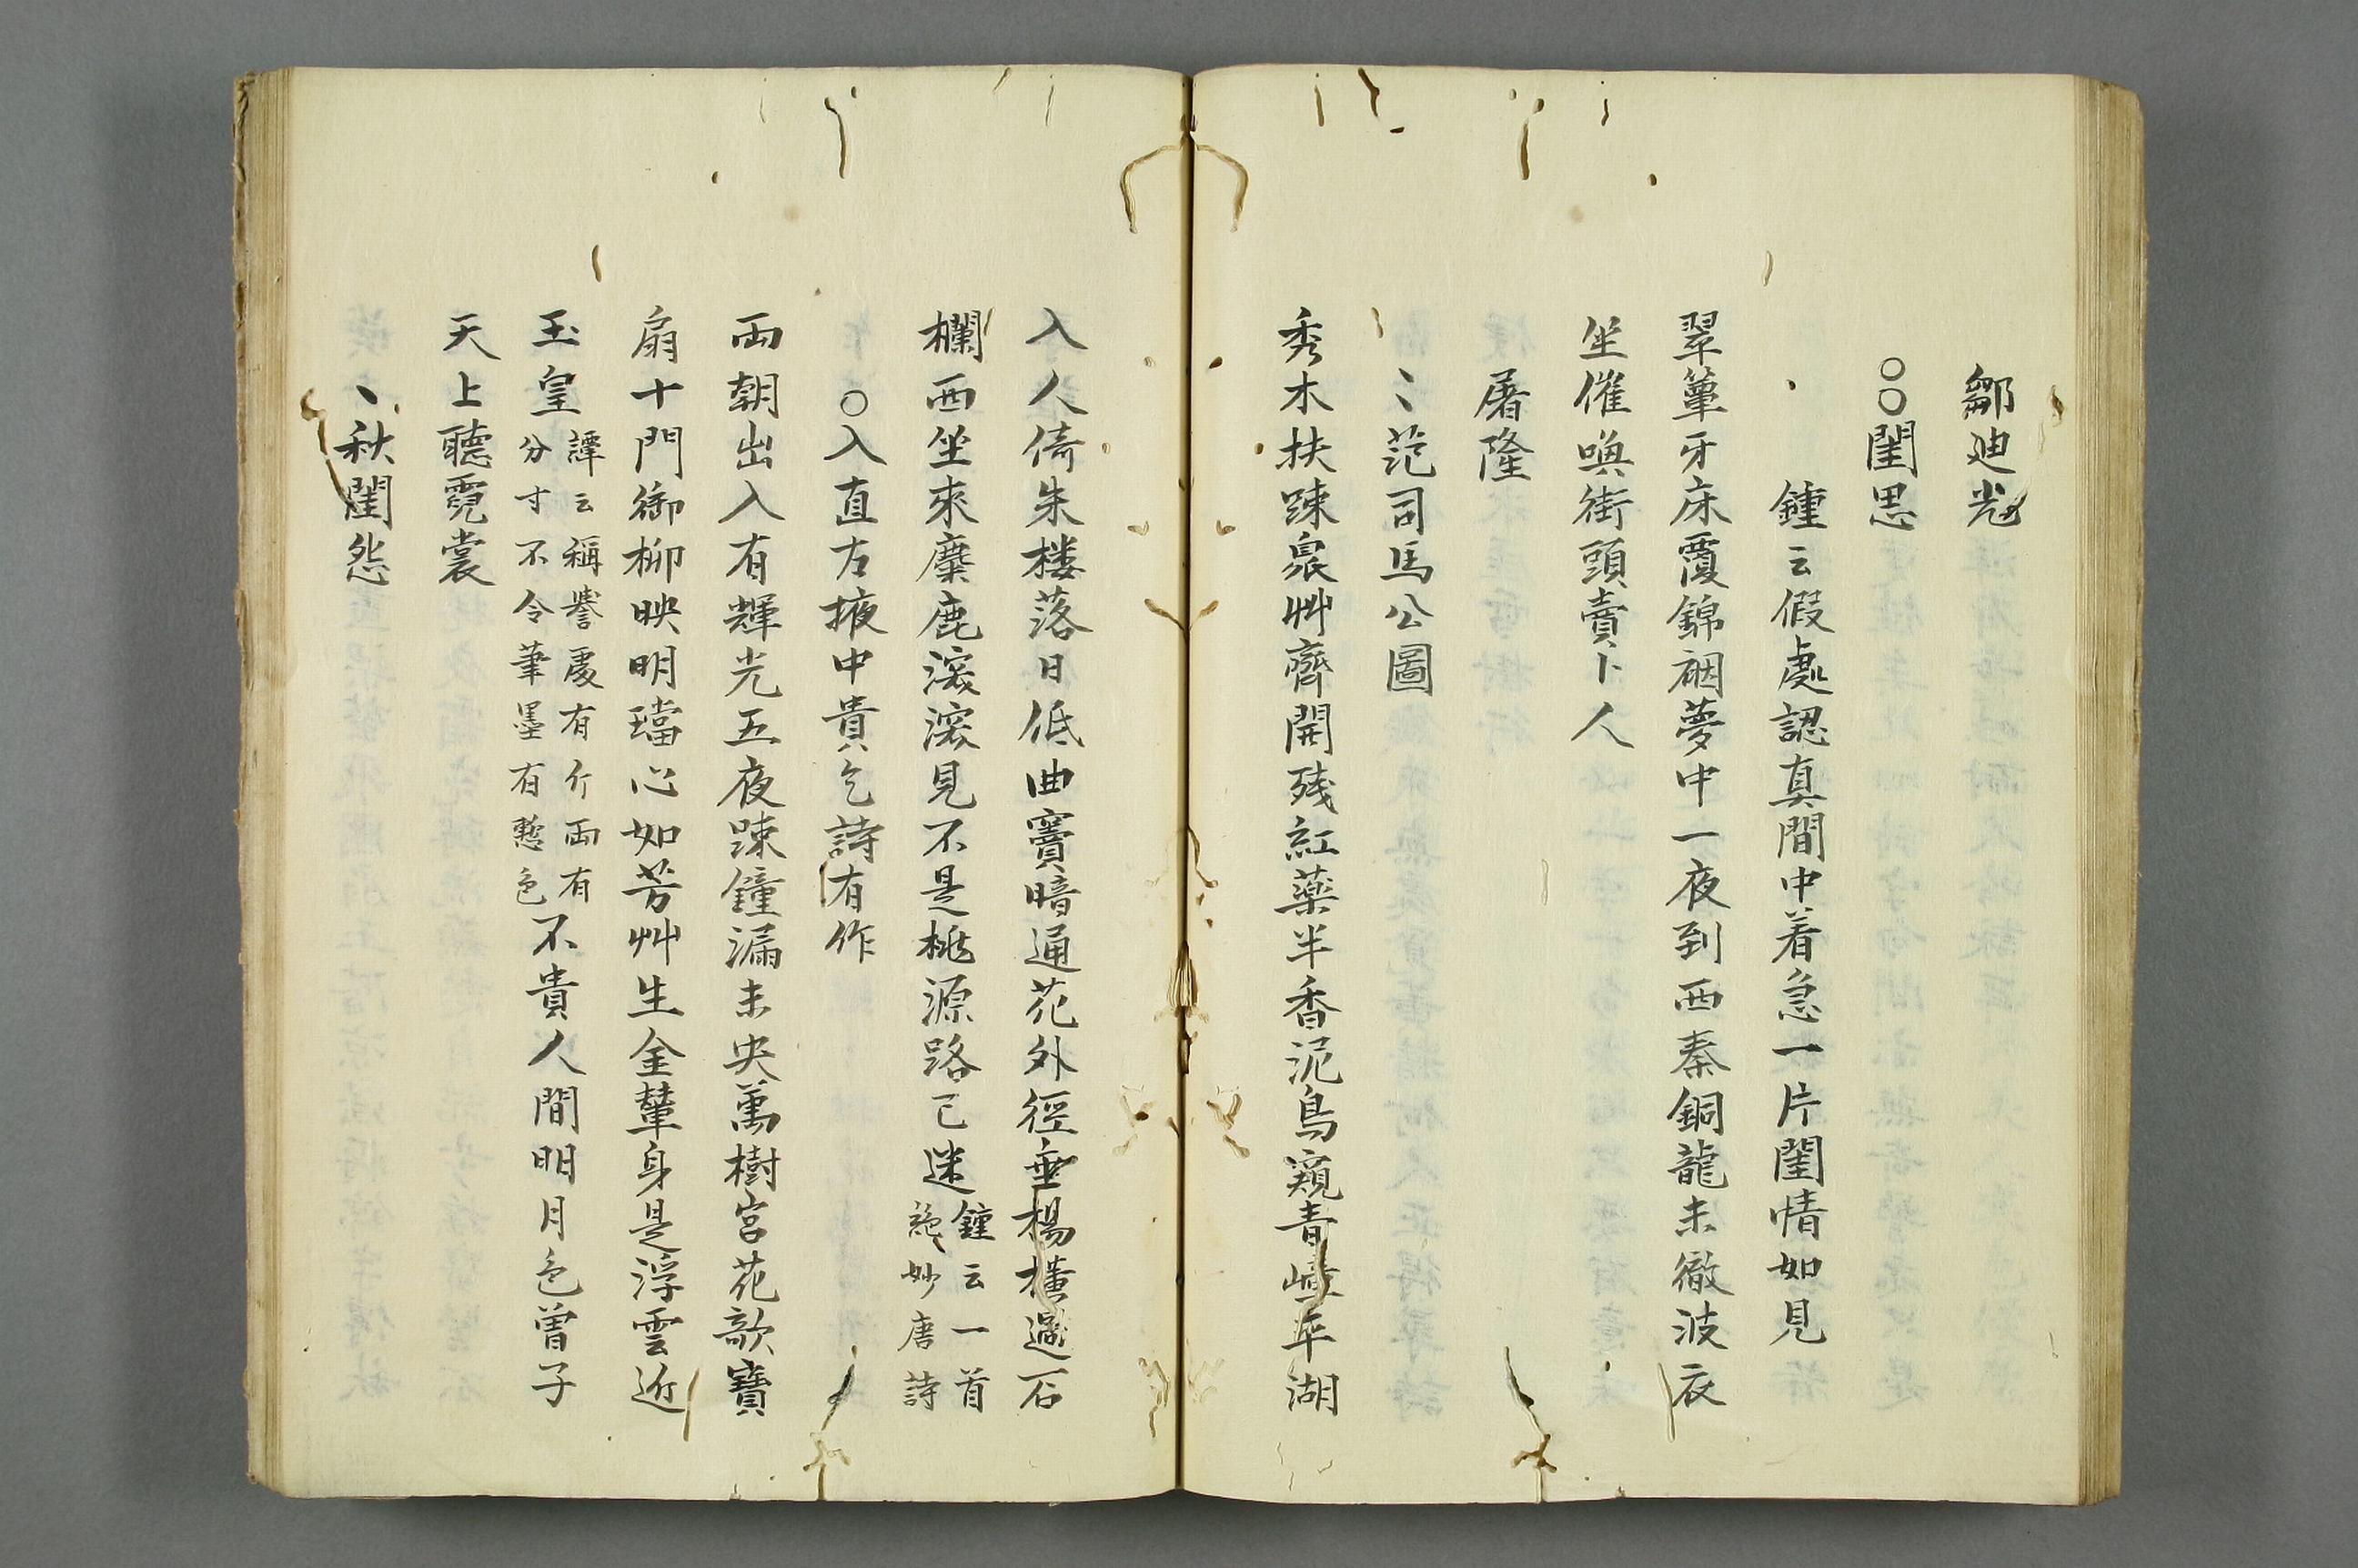 鄒迪光
○○閨思
鍾云假處認真間中着急一片閨情如見
翠簟牙床覆錦裀夢中一夜到西秦銅龍未徹波衣
坐催喚街頭賣卜人
屠隆
丶范司馬公圖
秀木扶踈泉艸齊開残紅藥半香泥鳥窺青嶂平湖
入人倚朱楼落日低曲竇暗通花外徑垂楊橫過石
欄西坐來麋鹿滚滚見不是桃源路已迷鍾云一首
絶妙唐詩
○入直左掖中貴乞詩有作
兩朝出入有輝光五夜踈鐘漏未央萬樹宮花歌寶
扇十門御柳映明璫心如芳艸生金輦身是浮雲近
玉皇譚云稱譽處有斤兩有
分寸不令筆墨有慙色不貴人間明月色曾子
天上聽霓裳
丶秋閨怨